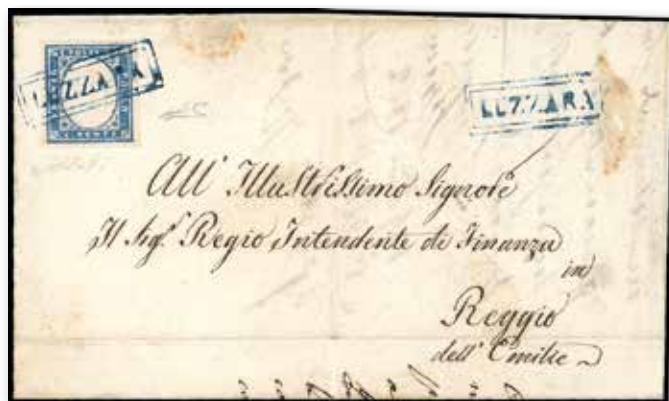 LUZZARA
LUZZARA
All' Illustrissimo Signore
Il Sigr. Regio Intendente di Finanza
in
Reggio
dell' Emilie